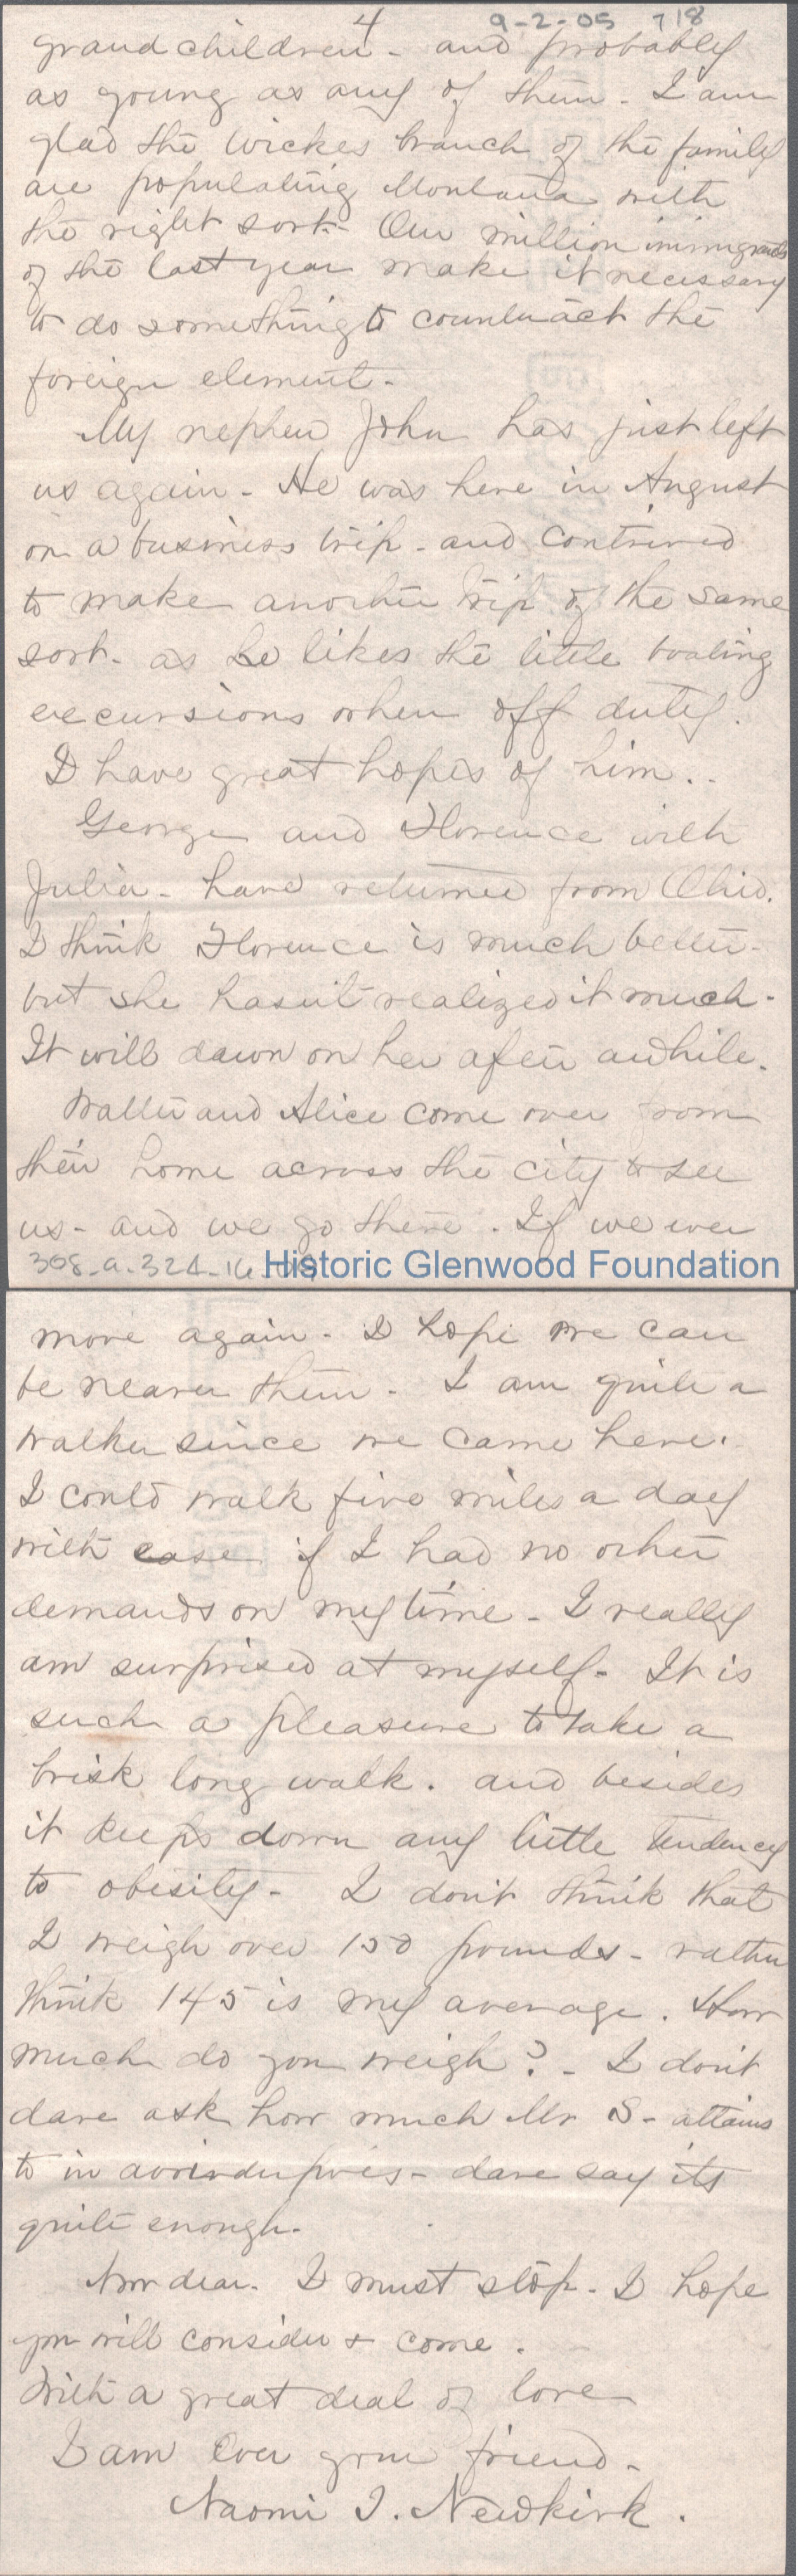 4
9-2-05 718
grandchildren - and probably
as young as any of them - I am
glad the Wickes branch of the family
are populating Montana with
the right sort - Our million immigrants
of the last year make it necessary
to do something to counteract the
foreign element -
My nephew John has just left
us again - He was here in August
on a business trip - and contrived
to make another trip of the same
sort - as he likes the little boating
excursions when off duty.
I have great hopes of him..
George and Florence with
Julia - have returned from Ohio.
I think Florence is much better -
but she hasn't realized it much -
It will dawn on her after awhile.
Walter and Alice come over from
their home across the city to see
us - and we go there. If we ever
308-a-324-16
Historic Glenwood Foundation
move again - I hope we can
be nearer them - I am quite a
walker since we came here.
I could walk five miles a day
with ease if I had no other
demands on my time - I really
am surprised at myself - It is
such a pleasure to take a
brisk long walk. and besides
it keeps down any little tendency
to obesity - I don't think that
I weigh over 150 pounds - rather
think 145 is my average. How
much do you weigh? - I don't
dare ask how much Mr S - attains
to in avoirdupois - dare say its
quite enough -
Now dear - I must stop - I hope
you will consider & come.
With a great deal of love
I am Ever your friend -
Naomi I. Newkirk.